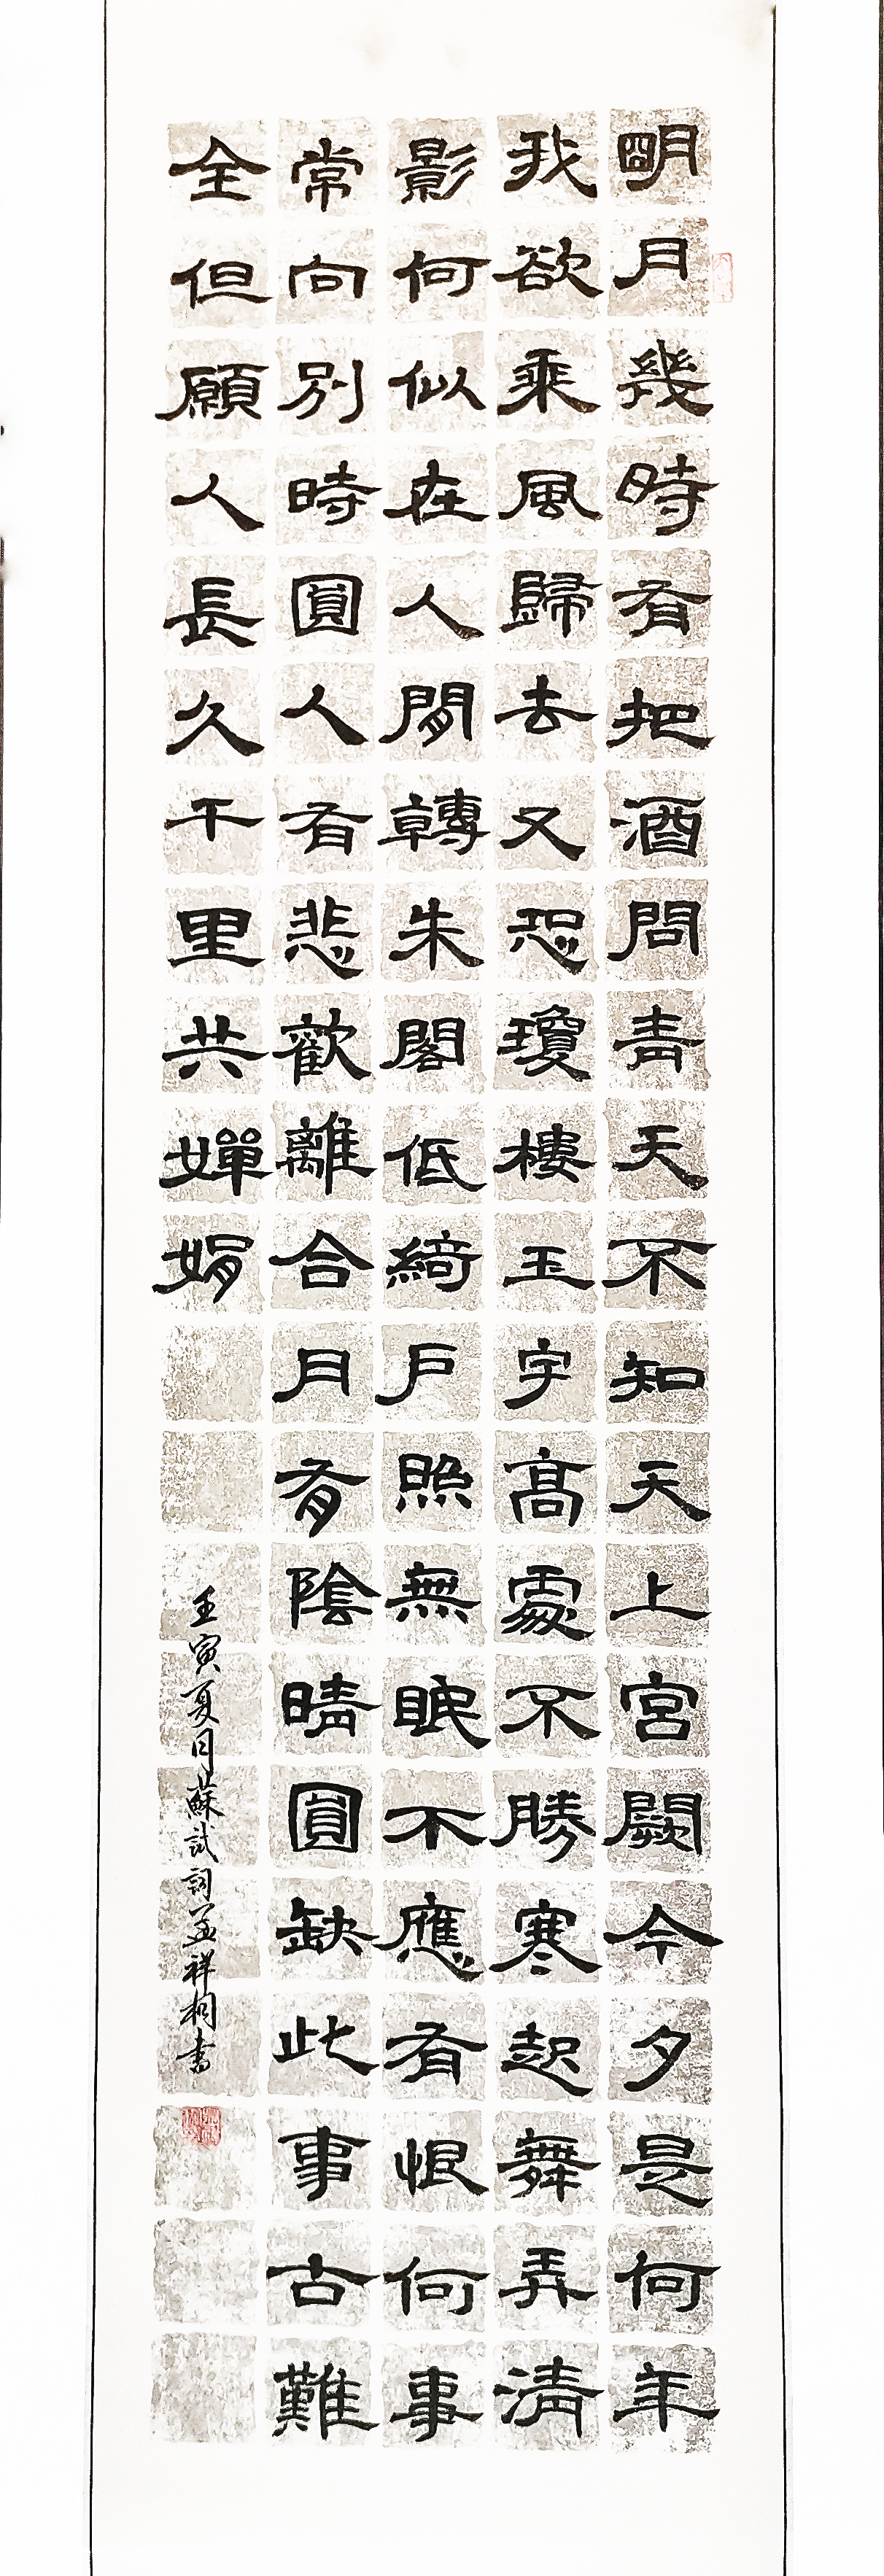 明月幾時有把酒問青天不知天上宮闕今夕是何年
我欲乘風歸去又恐瓊樓玉宇高處不勝寒起舞弄清
影何似在人間轉朱閣低綺戶照無眠不應有恨何事
常向別時圓人有悲歡離合月有陰晴圓缺此事古難
全但願人長久千里共嬋娟
壬寅夏月蘇試詞孟祥桐書